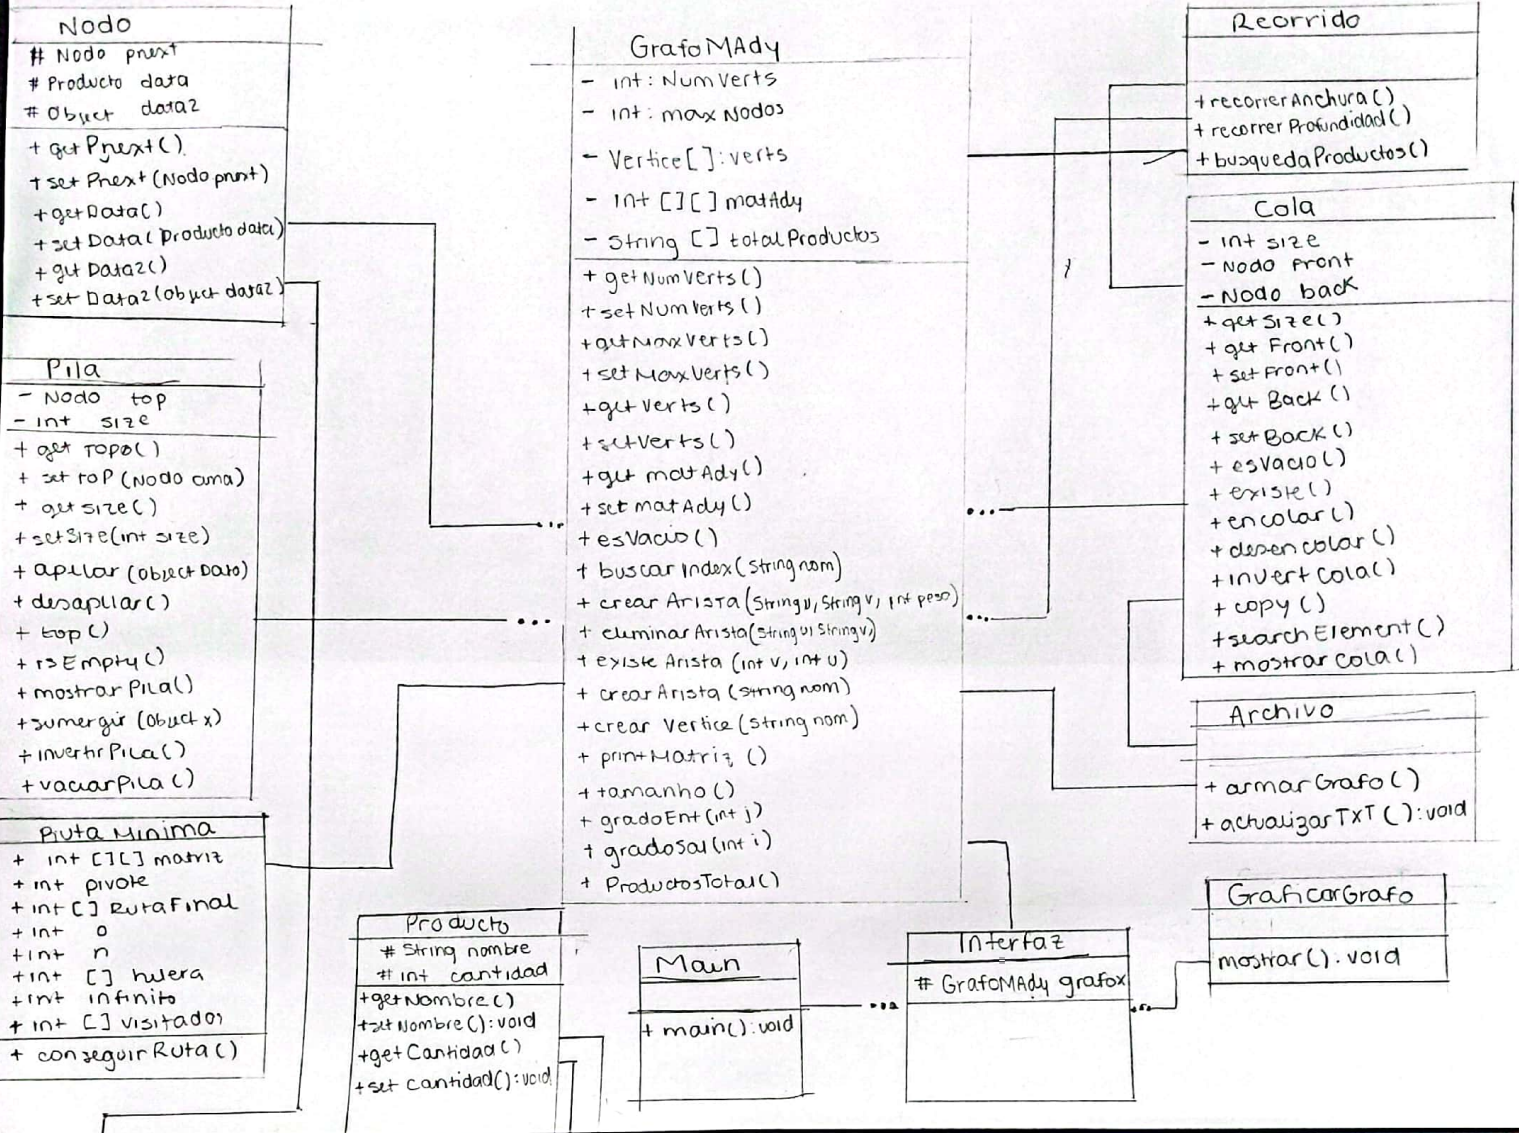 Nodo
# Nodo pnext
# Producto data
# Object data2
+ getPnext()
+ set Pnext (Nodo pnext)
+ getData()
+ set Data(Producto data)
+ get Data2()
+ set Data2(Object data2)
Pila
- Nodo top
- int size
+ get TOPO()
+ set TOP (Nodo cima)
+ get size()
+ setSize(int size)
+ apilar (Object Dato)
+ desapilar()
+ top()
+ isEmpty()
+ mostrar Pila()
+ sumergir (Object x)
+ invertir Pila()
+ vaciar Pila()
Ruta Minima
+ int [][] matriz
+ int pivote
+ int [] RutaFinal
+ int o
+ int n
+ int []
+ int infinito
+ int [] visitados
+ conseguir Ruta()
GrafoMAdy
- int: NumVerts
- int: maxNodos
- Vertice[]: verts
- int [][] matAdy
- String [] totalProductos
+ getNumVerts()
+ setNumVerts()
+ getMaxVerts()
+ setMaxVerts()
+ getVerts()
+ setVerts()
+ get matAdy()
+ set matAdy()
+ esVacio()
+ buscar Index(String nom)
+ crear Arista(String u, String v, int peso)
+ eliminar Arista(String u, String v)
+ existe Arista (int v, int u)
+ crear Arista (string nom)
+ crear Vertice (string nom)
+ printMatriz ()
+ tamanho()
+ gradoEnt(int j)
+ gradoSal(int i)
+ ProductosTotal()
Producto
# String nombre
# int cantidad
+ getNombre()
+ setNombre(): void
+ getCantidad()
+ set cantidad(): void
Main
+ main(): void
Interfaz
# GrafoMAdy grafox
Recorrido
+ recorrerAnchura()
+ recorrer Profundidad()
+ busquedaProductos()
Cola
- int size
- Nodo Front
- Nodo back
+ getSize()
+ get Front()
+ set Front()
+ get Back ()
+ set Back()
+ esVacio()
+ existe()
+ encolar()
+ desencolar()
+ invert Cola()
+ copy()
+ searchElement()
+ mostrar Cola()
Archivo
+ armar Grafo()
+ actualizar TxT (): void
GraficarGrafo
mostrar(): void